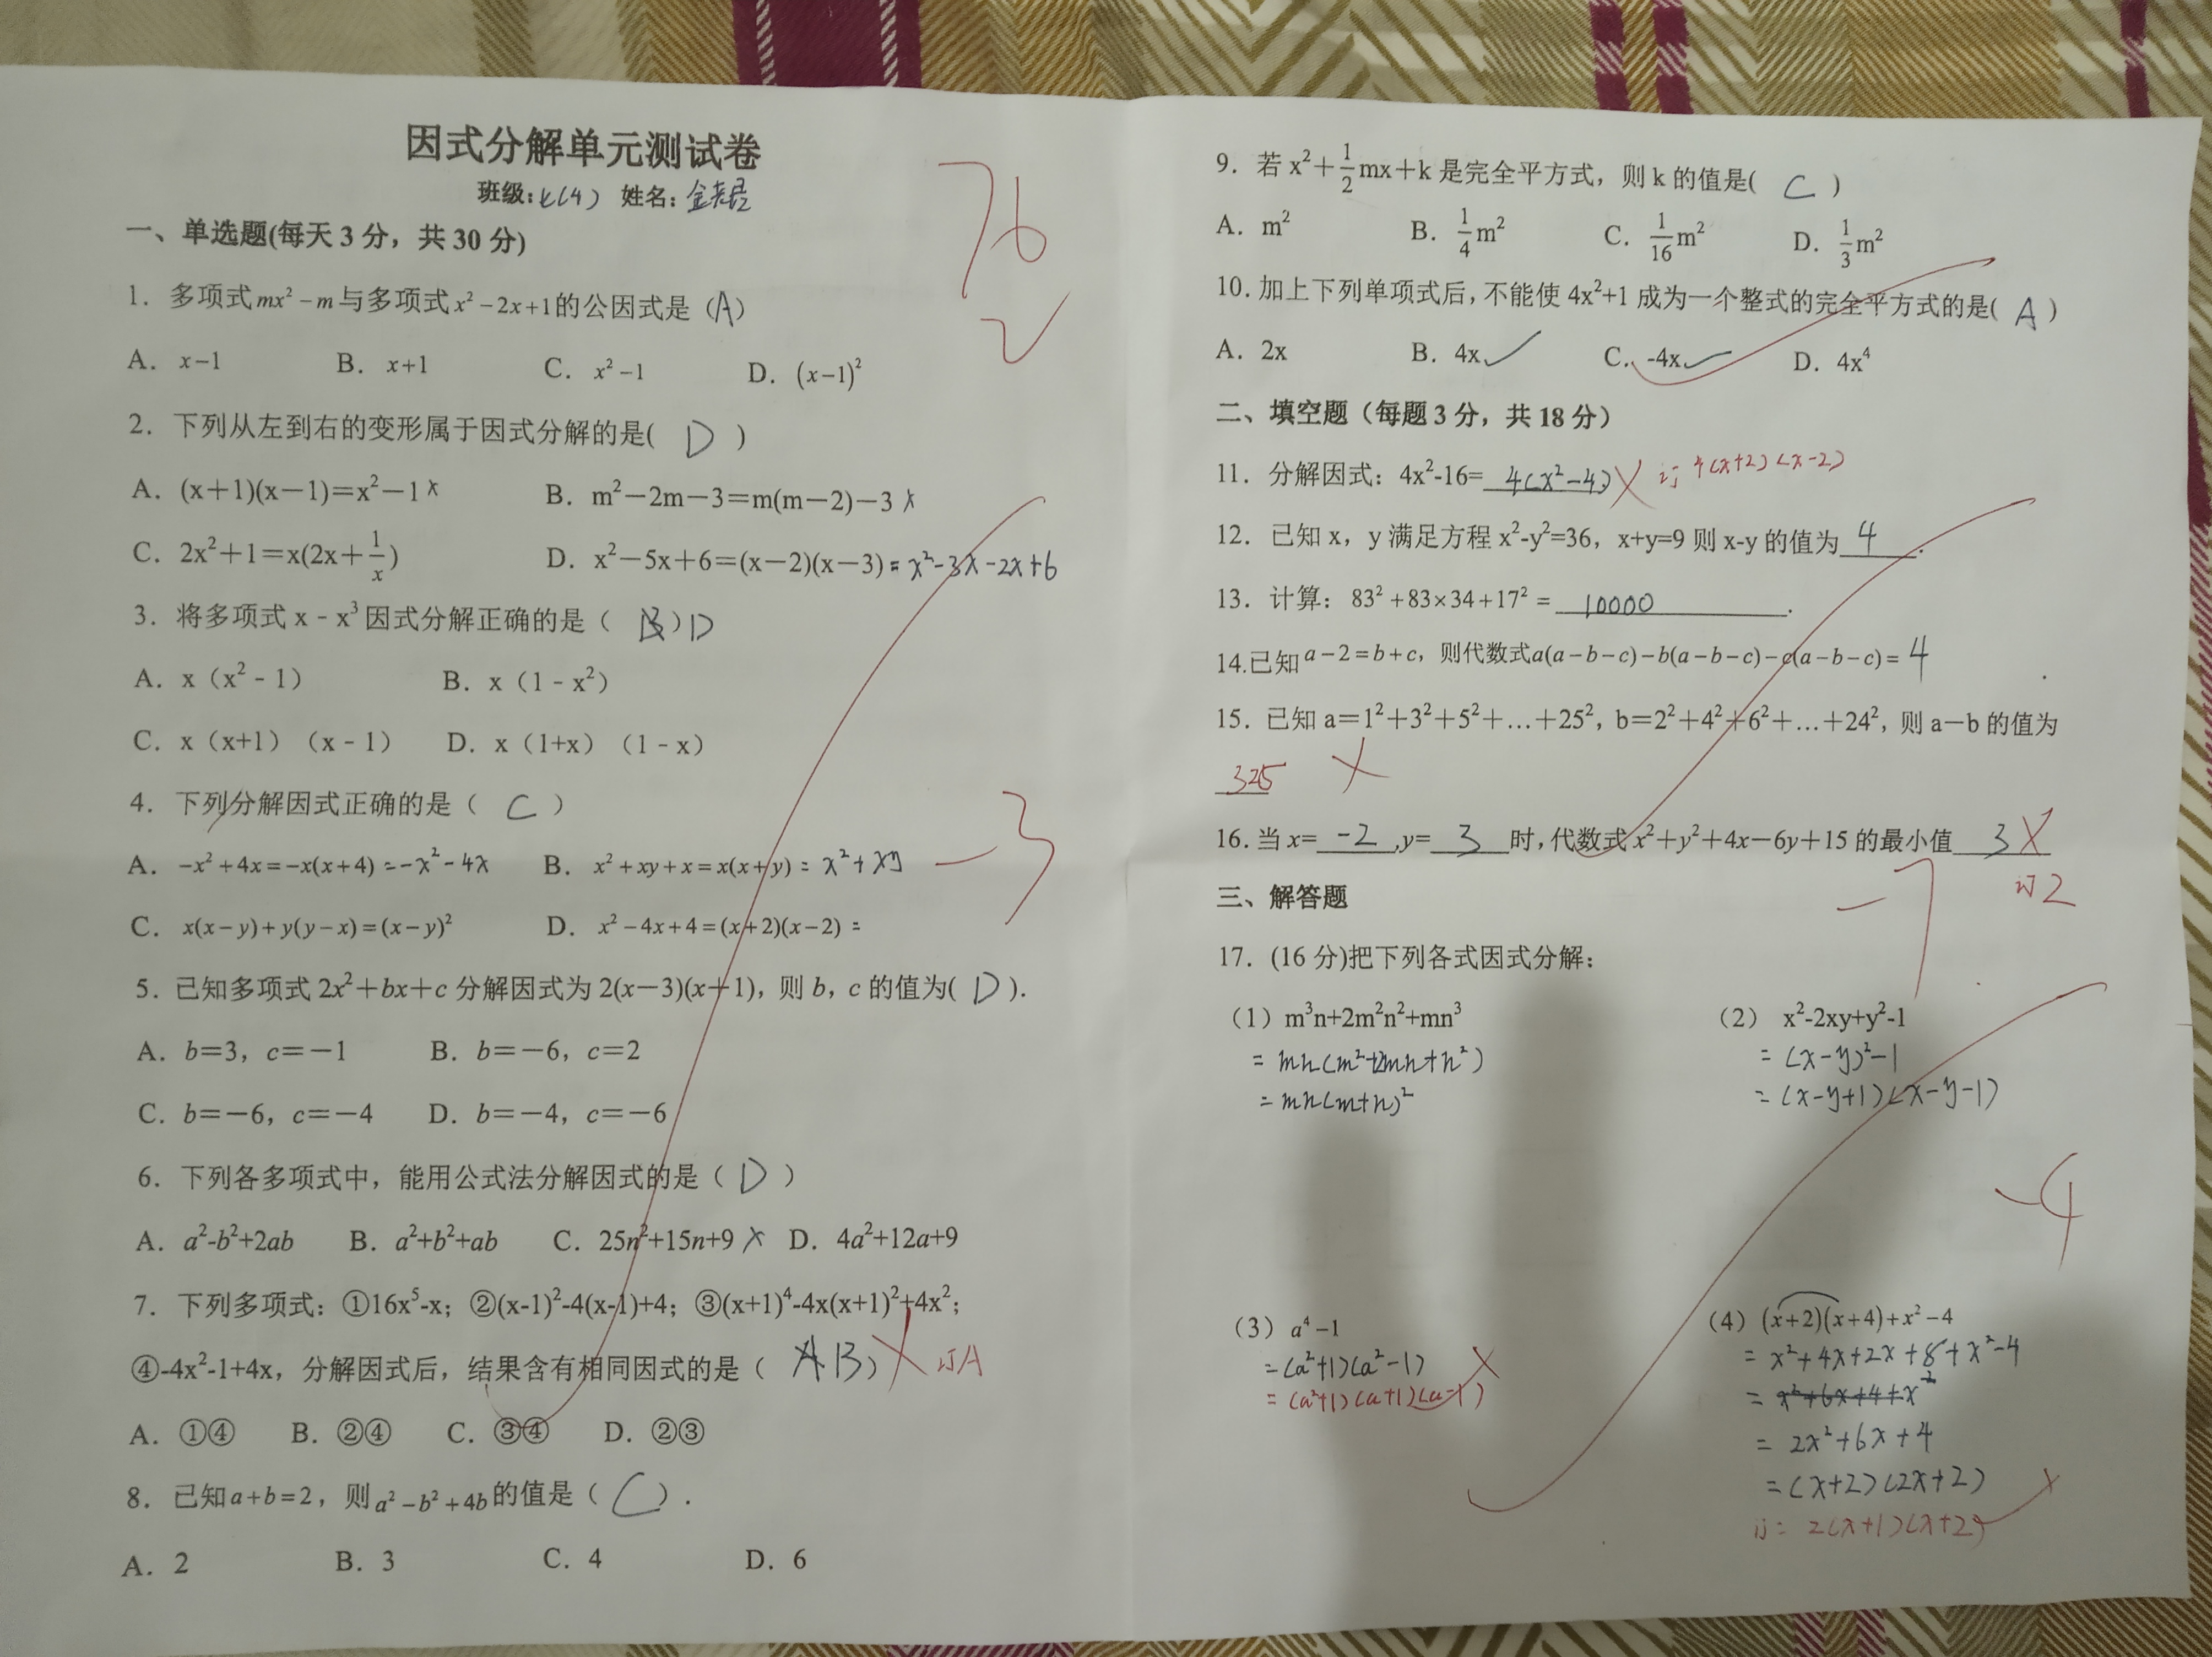 因式分解单元测试卷
班级:七(4) 姓名:
76
一、单选题(每天3分，共30分)
1. 多项式mx²-m与多项式x²-2x+1的公因式是（A）
A. x-1 B. x+1 C. x²-1 D. (x-1)²
2. 下列从左到右的变形属于因式分解的是( D )
A. (x+1)(x-1)=x²-1 × B. m²-2m-3=m(m-2)-3 ×
C. 2x²+1=x(2x+1/x) D. x²-5x+6=(x-2)(x-3) = x²-3x-2x+6
3. 将多项式 x﹣x³因式分解正确的是（ B ）D
A. x（x²﹣1） B. x（1﹣x²）
C. x（x+1）（x﹣1） D. x（1+x）（1﹣x）
4. 下列分解因式正确的是（ C ）
A. -x²+4x=-x(x+4) =-x²-4x B. x²+xy+x=x(x+y) = x²+xy
-3
C. x(x-y)+y(y-x)=(x-y)² D. x²-4x+4=(x+2)(x-2) =
5. 已知多项式 2x²+bx+c 分解因式为 2(x-3)(x+1)，则 b，c 的值为( D ).
A. b=3，c=-1 B. b=-6，c=2
C. b=-6，c=-4 D. b=-4，c=-6
6. 下列各多项式中，能用公式法分解因式的是（ D ）
A. a²-b²+2ab B. a²+b²+ab C. 25n²+15n+9 × D. 4a²+12a+9
7. 下列多项式：①16x⁵-x；②(x-1)²-4(x-1)+4；③(x+1)⁴-4x(x+1)²+4x²；
④-4x²-1+4x，分解因式后，结果含有相同因式的是（ A B ）× 订A
A. ①④ B. ②④ C. ③④ D. ②③
8. 已知a+b=2，则a²-b²+4b的值是（ C ）.
A. 2 B. 3 C. 4 D. 6
9. 若 x²+1/2mx+k 是完全平方式，则 k 的值是( C )
A. m² B. 1/4m² C. 1/16m² D. 1/3m²
10. 加上下列单项式后，不能使 4x²+1 成为一个整式的完全平方式的是( A )
A. 2x B. 4x ✓ C. -4x ✓ D. 4x⁴
二、填空题（每题3分，共18分）
11. 分解因式：4x²-16= 4(x²-4) × 订 4(x+2)(x-2)
12. 已知 x，y 满足方程 x²-y²=36，x+y=9 则 x-y 的值为 4 .
13. 计算：83²+83×34+17²= 10000 .
14.已知a-2=b+c，则代数式a(a-b-c)-b(a-b-c)-c(a-b-c)= 4 .
15. 已知 a=1²+3²+5²+…+25²，b=2²+4²+6²+…+24²，则 a-b 的值为
325 ×
16. 当 x= -2 ,y= 3 时，代数式 x²+y²+4x-6y+15 的最小值 3 ×
订2
-7
三、解答题
17. (16分)把下列各式因式分解：
（1）m³n+2m²n²+mn³ （2） x²-2xy+y²-1
= mn(m²+2mn+n²) = (x-y)²-1
= mn(m+n)² = (x-y+1)(x-y-1)
-4
（3）a⁴-1 （4）(x+2)(x+4)+x²-4
=(a²+1)(a²-1) × = x²+4x+2x+8+x²-4
=(a²+1)(a+1)(a-1) = x²+6x+4+x²
= 2x²+6x+4
=(x+2)(2x+2) ×
订= 2(x+1)(x+2)